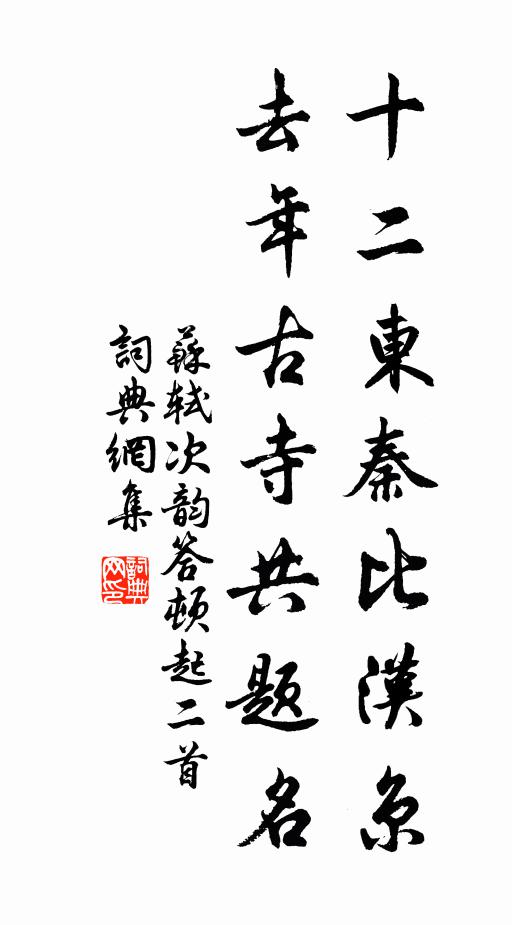 十二東秦比漢京
去年古寺共題名
蘇軾次韵答頓起二首
詞典網集
詞典网印